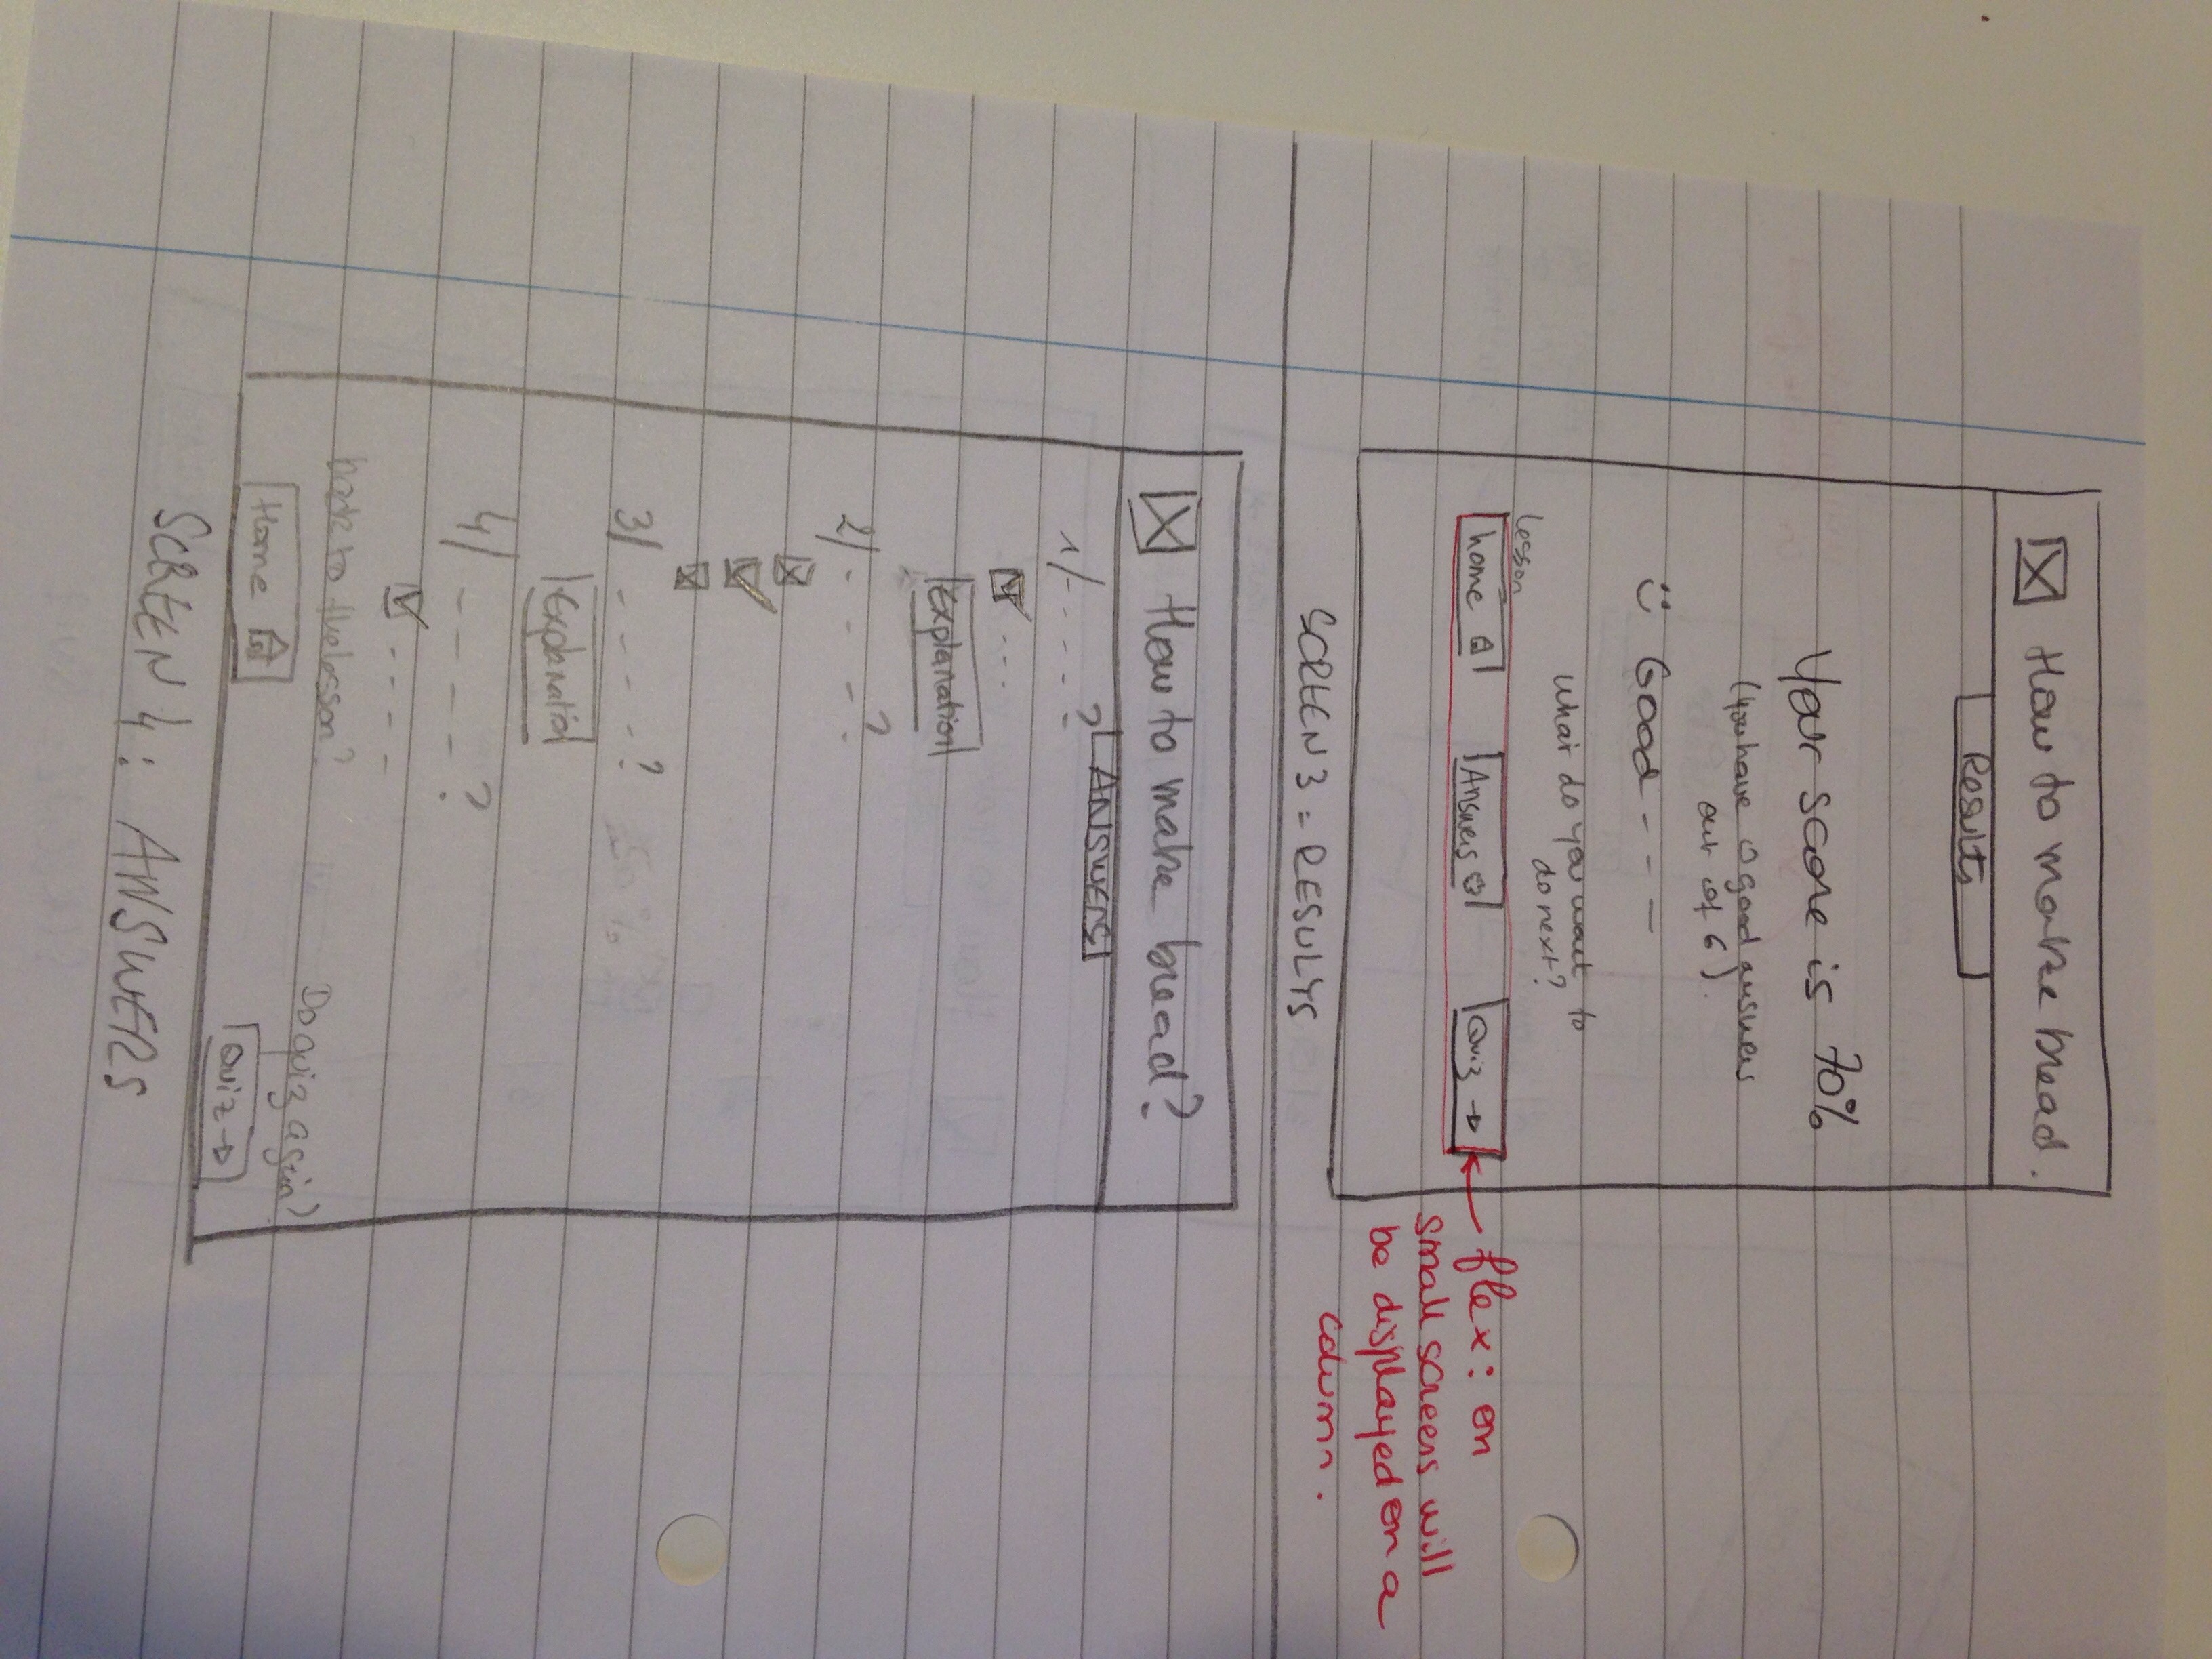 How to make bread.
Results
Your score is 70%
(you have 0 good answers
out of 6).
Good - - -
what do you want to
do next?
lesson
home
Answers
Quiz →
flex: on
small screens will
be displayed on a
column.
SCREEN 3 = RESULTS
How to make bread?
ANSWERS
1/ - - - - ?
- - -
Explanation
2/ - - - - ?
3/ - - - - ?
Explanation
4/ - - - - ?
- - - -
back to the lesson?
Do Quiz again)
Home
Quiz →
SCREEN 4: ANSWERS